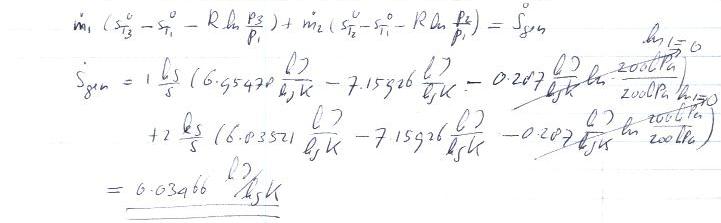 ṁ₁ (s°T3 - s°T1 - R ln P3/P1) + ṁ₂ (s°T2 - s°T1 - R ln P2/P1) = Ṡgen
ln 1 = 0
Ṡgen = 1 kg/s (6.95478 kJ/kgK - 7.15926 kJ/kgK - 0.287 kJ/kgK ln 200kPa/200kPa)
ln 1 = 0
+ 2 kg/s (6.83521 kJ/kgK - 7.15926 kJ/kgK - 0.287 kJ/kgK ln 200kPa/200kPa)
= 0.03466 kJ/kgK